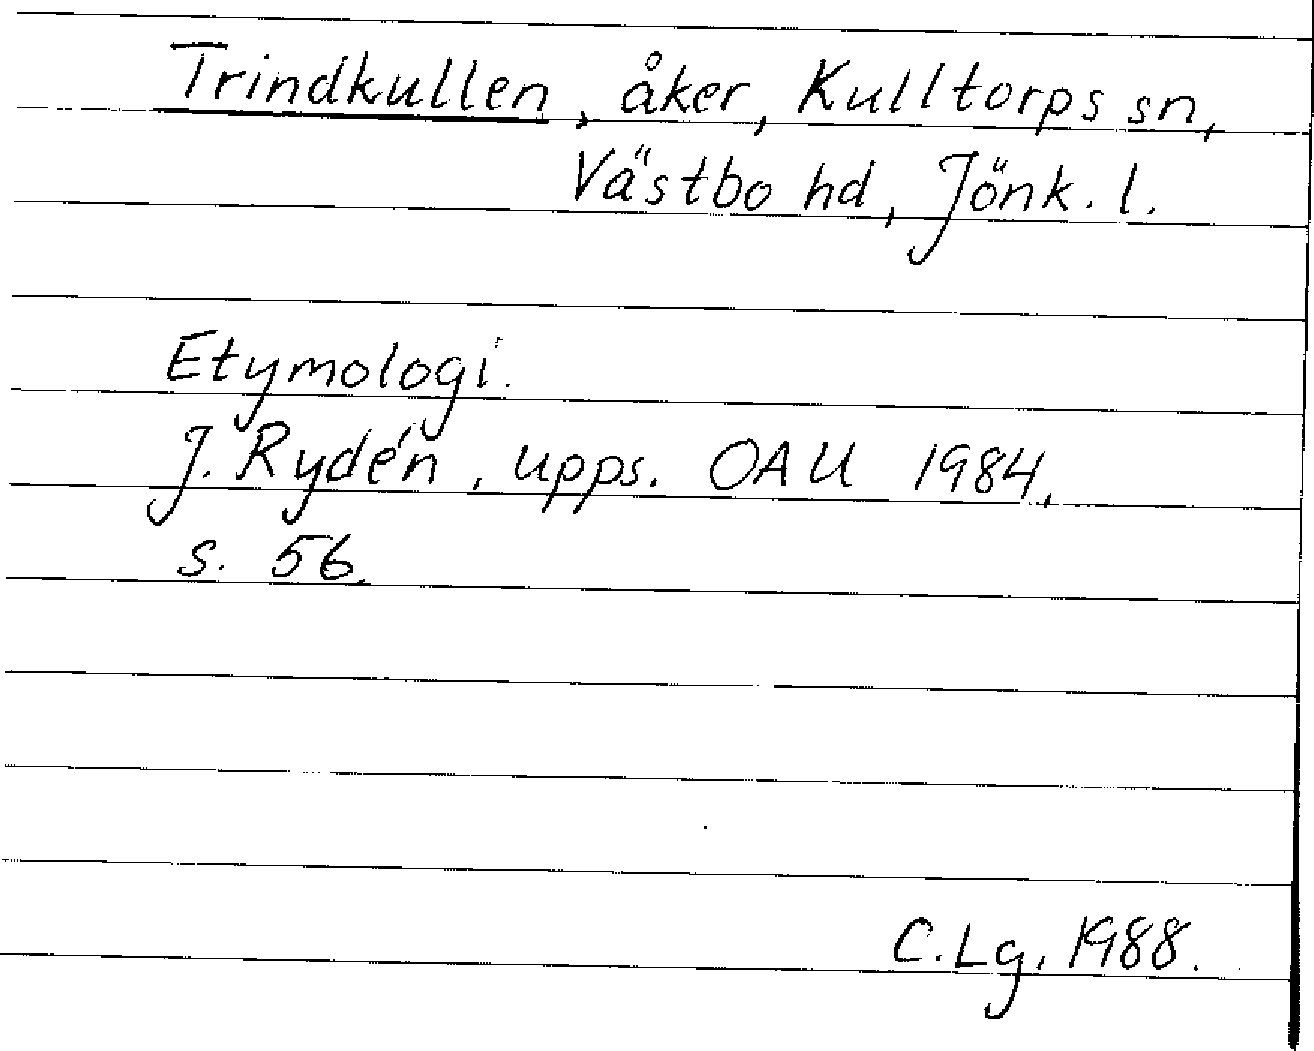 Trindkullen, åker, Kulltorps sn,
Västbo hd, Jönk. l.
Etymologi.
J. Rydén, upps. OAU 1984,
s. 56.
C.Lg, 1988.